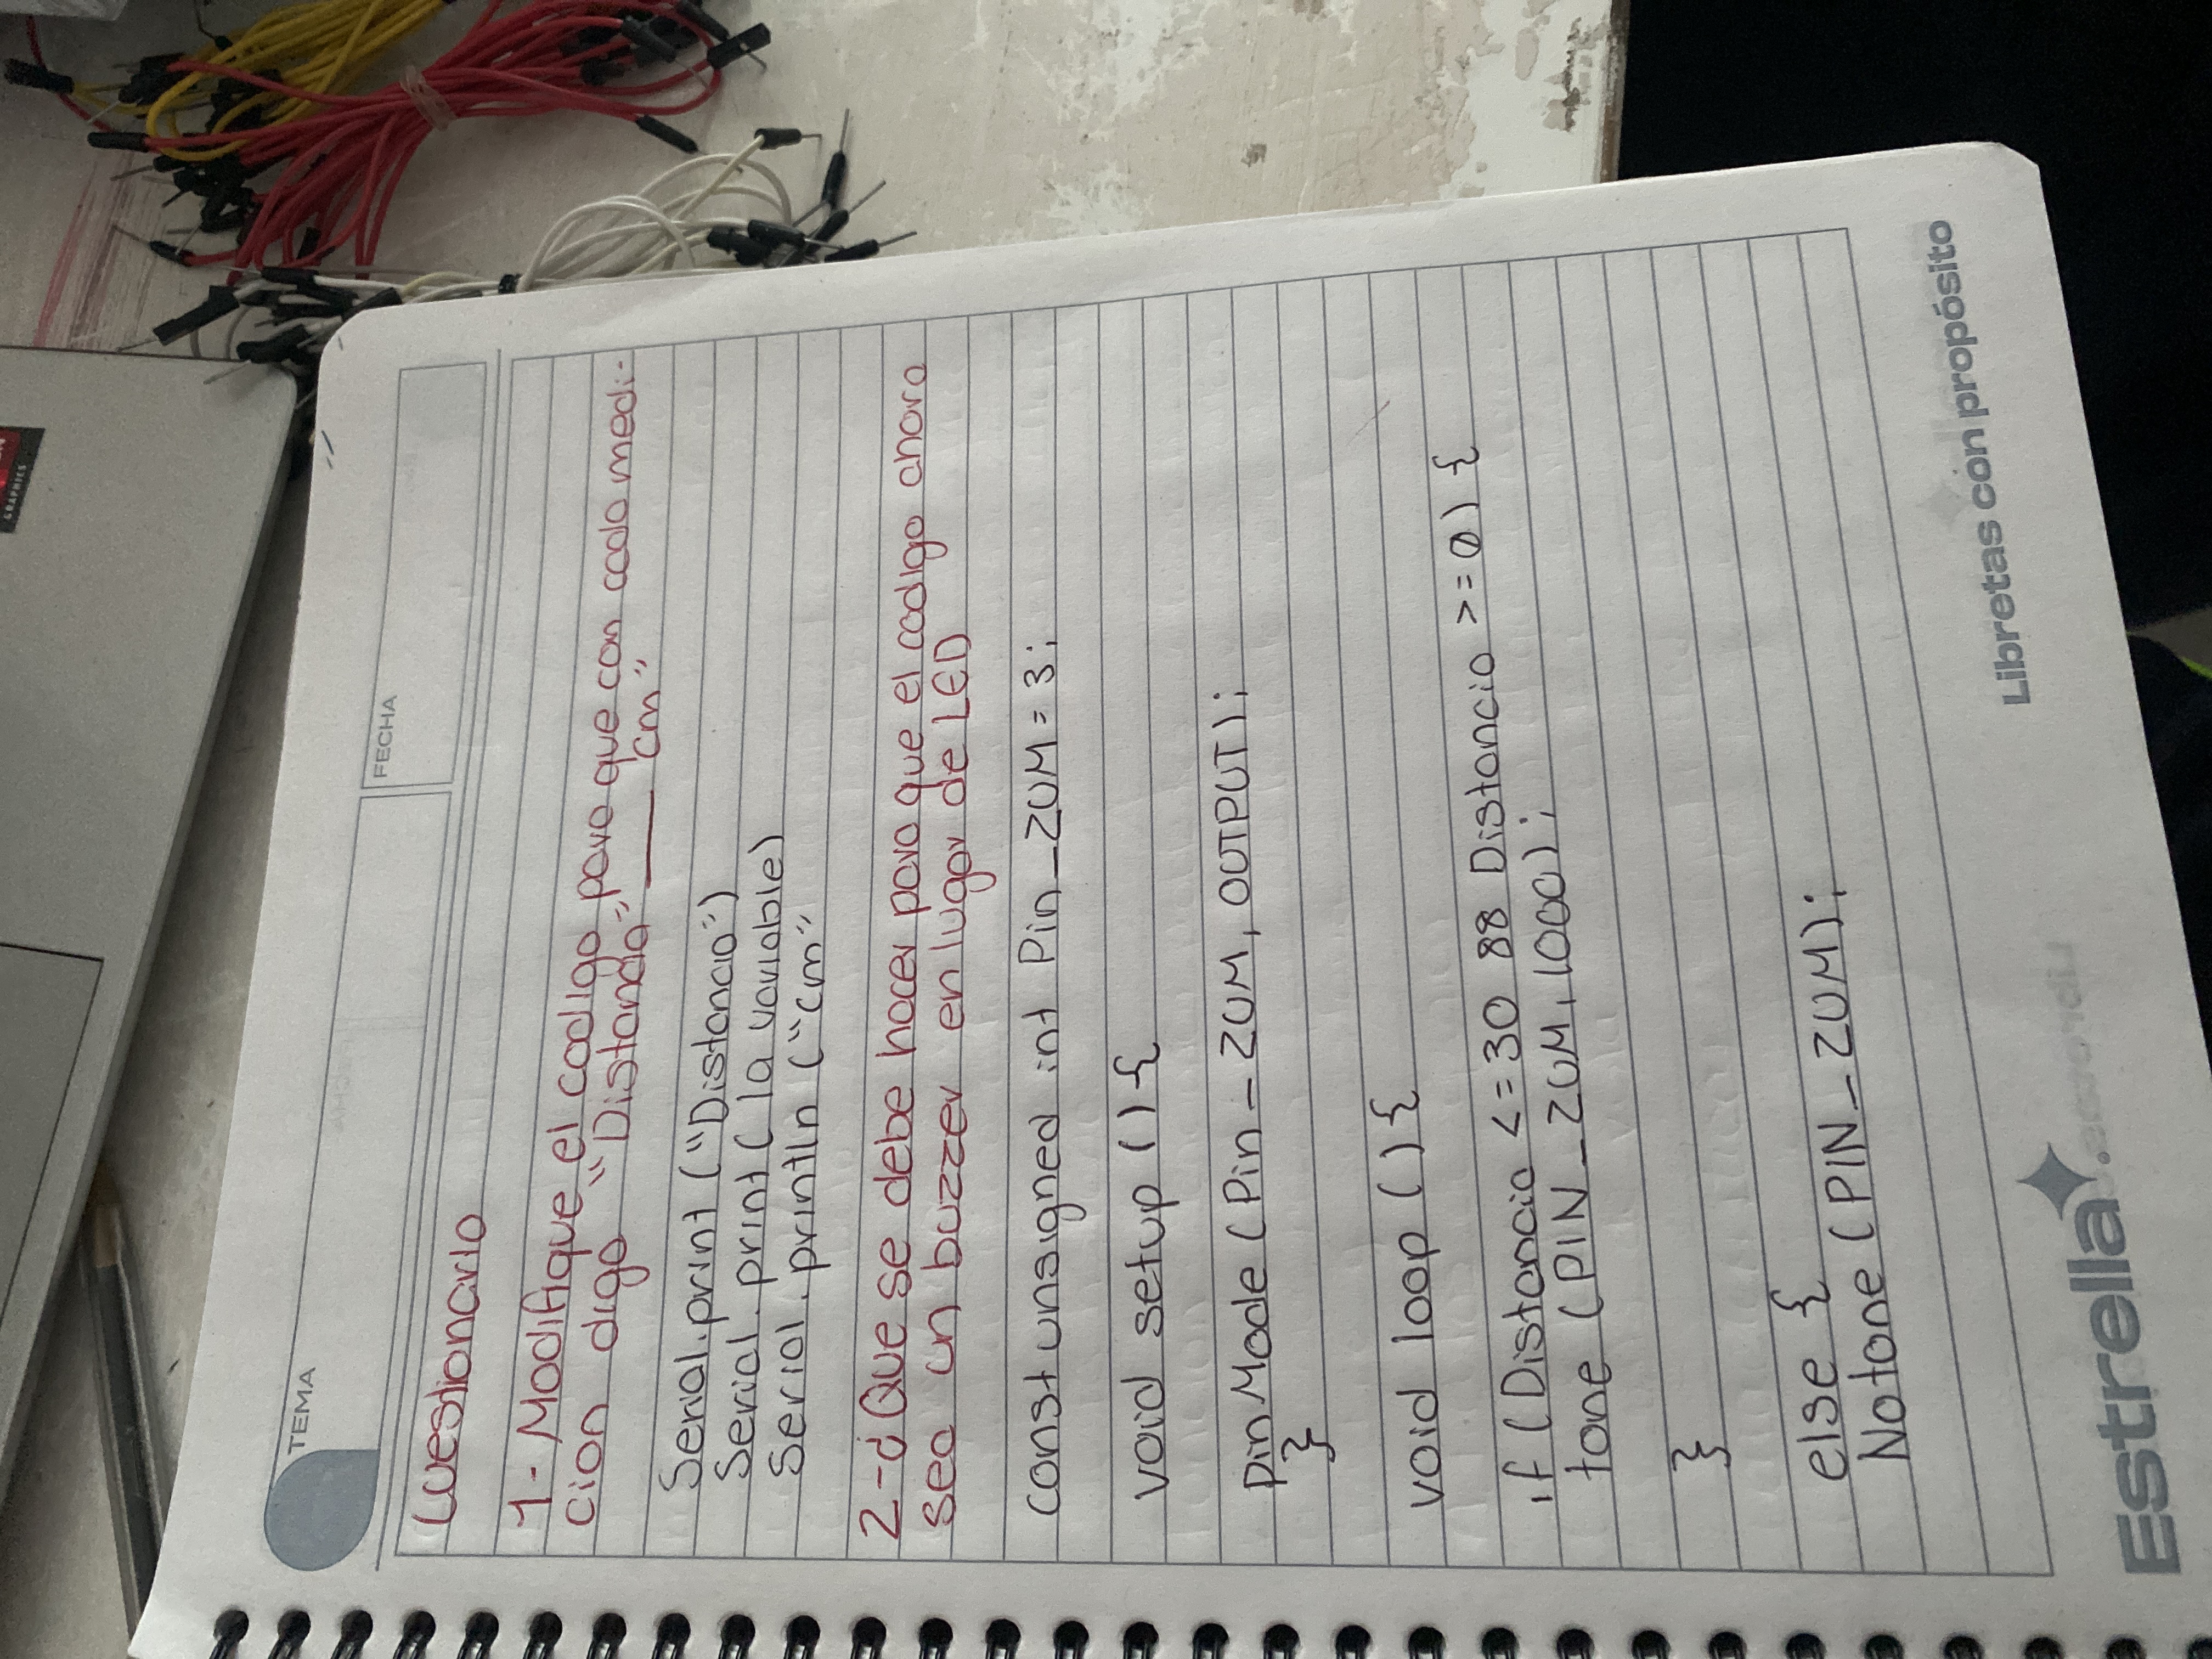 TEMA
FECHA
Cuestionario
1- Modifique el codigo pave que con cada medi-
cion diga "Distancia" ____ cm"
Serial.print ("Distancia")
Serial.print ( la variable)
Serial.println ("cm"
2-¿Que se debe hacer para que el codigo ahora
sea un buzzer en lugar de LED
const unsigned int Pin_ZUM = 3;
void setup () {
pinMode (Pin_ZUM, OUTPUT);
}
void loop () {
if (Distancia <= 30 && Distancia >= 0) {
tone (PIN_ZUM, 1000);
}
else {
Notone (PIN_ZUM);
Estrella
Libretas con propósito
GRAPHICS